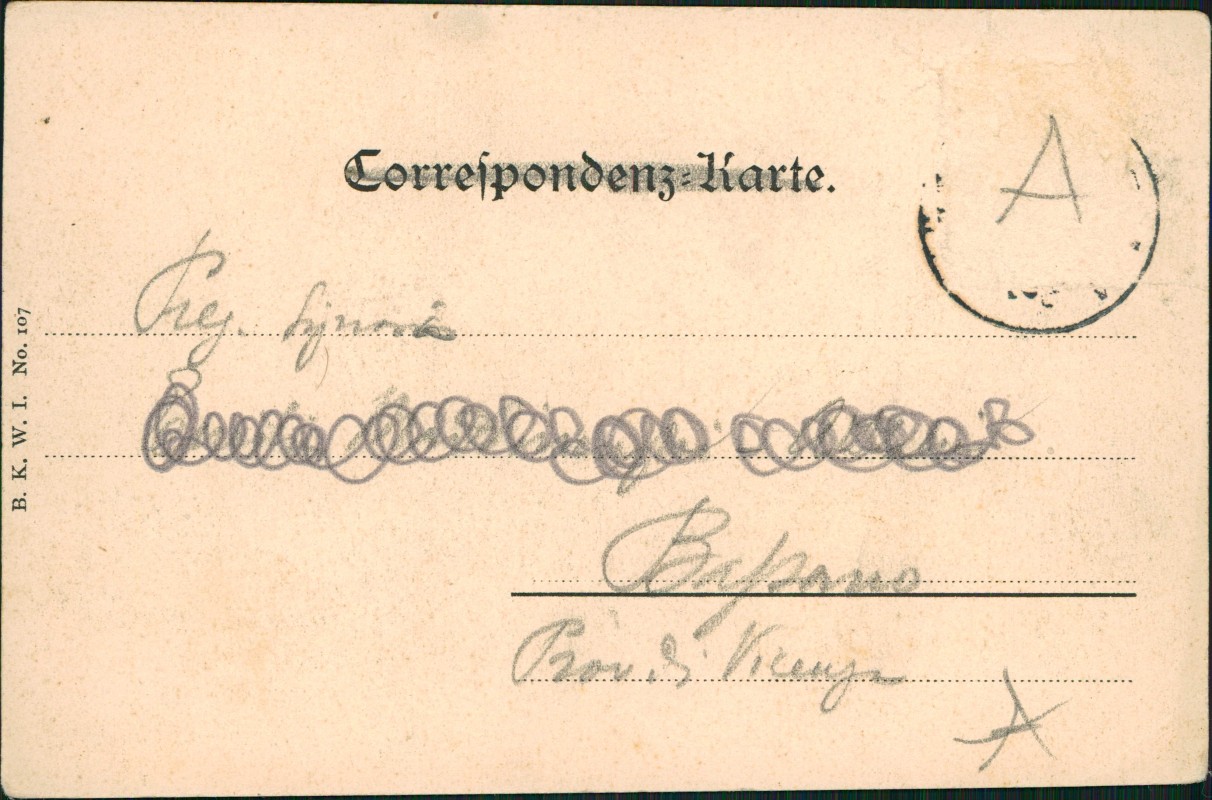 Correſpondenz-Karte.
A
Preg. Signora
Baſsano
Prov. di Vicenza
A
B. K. W. I. No. 107